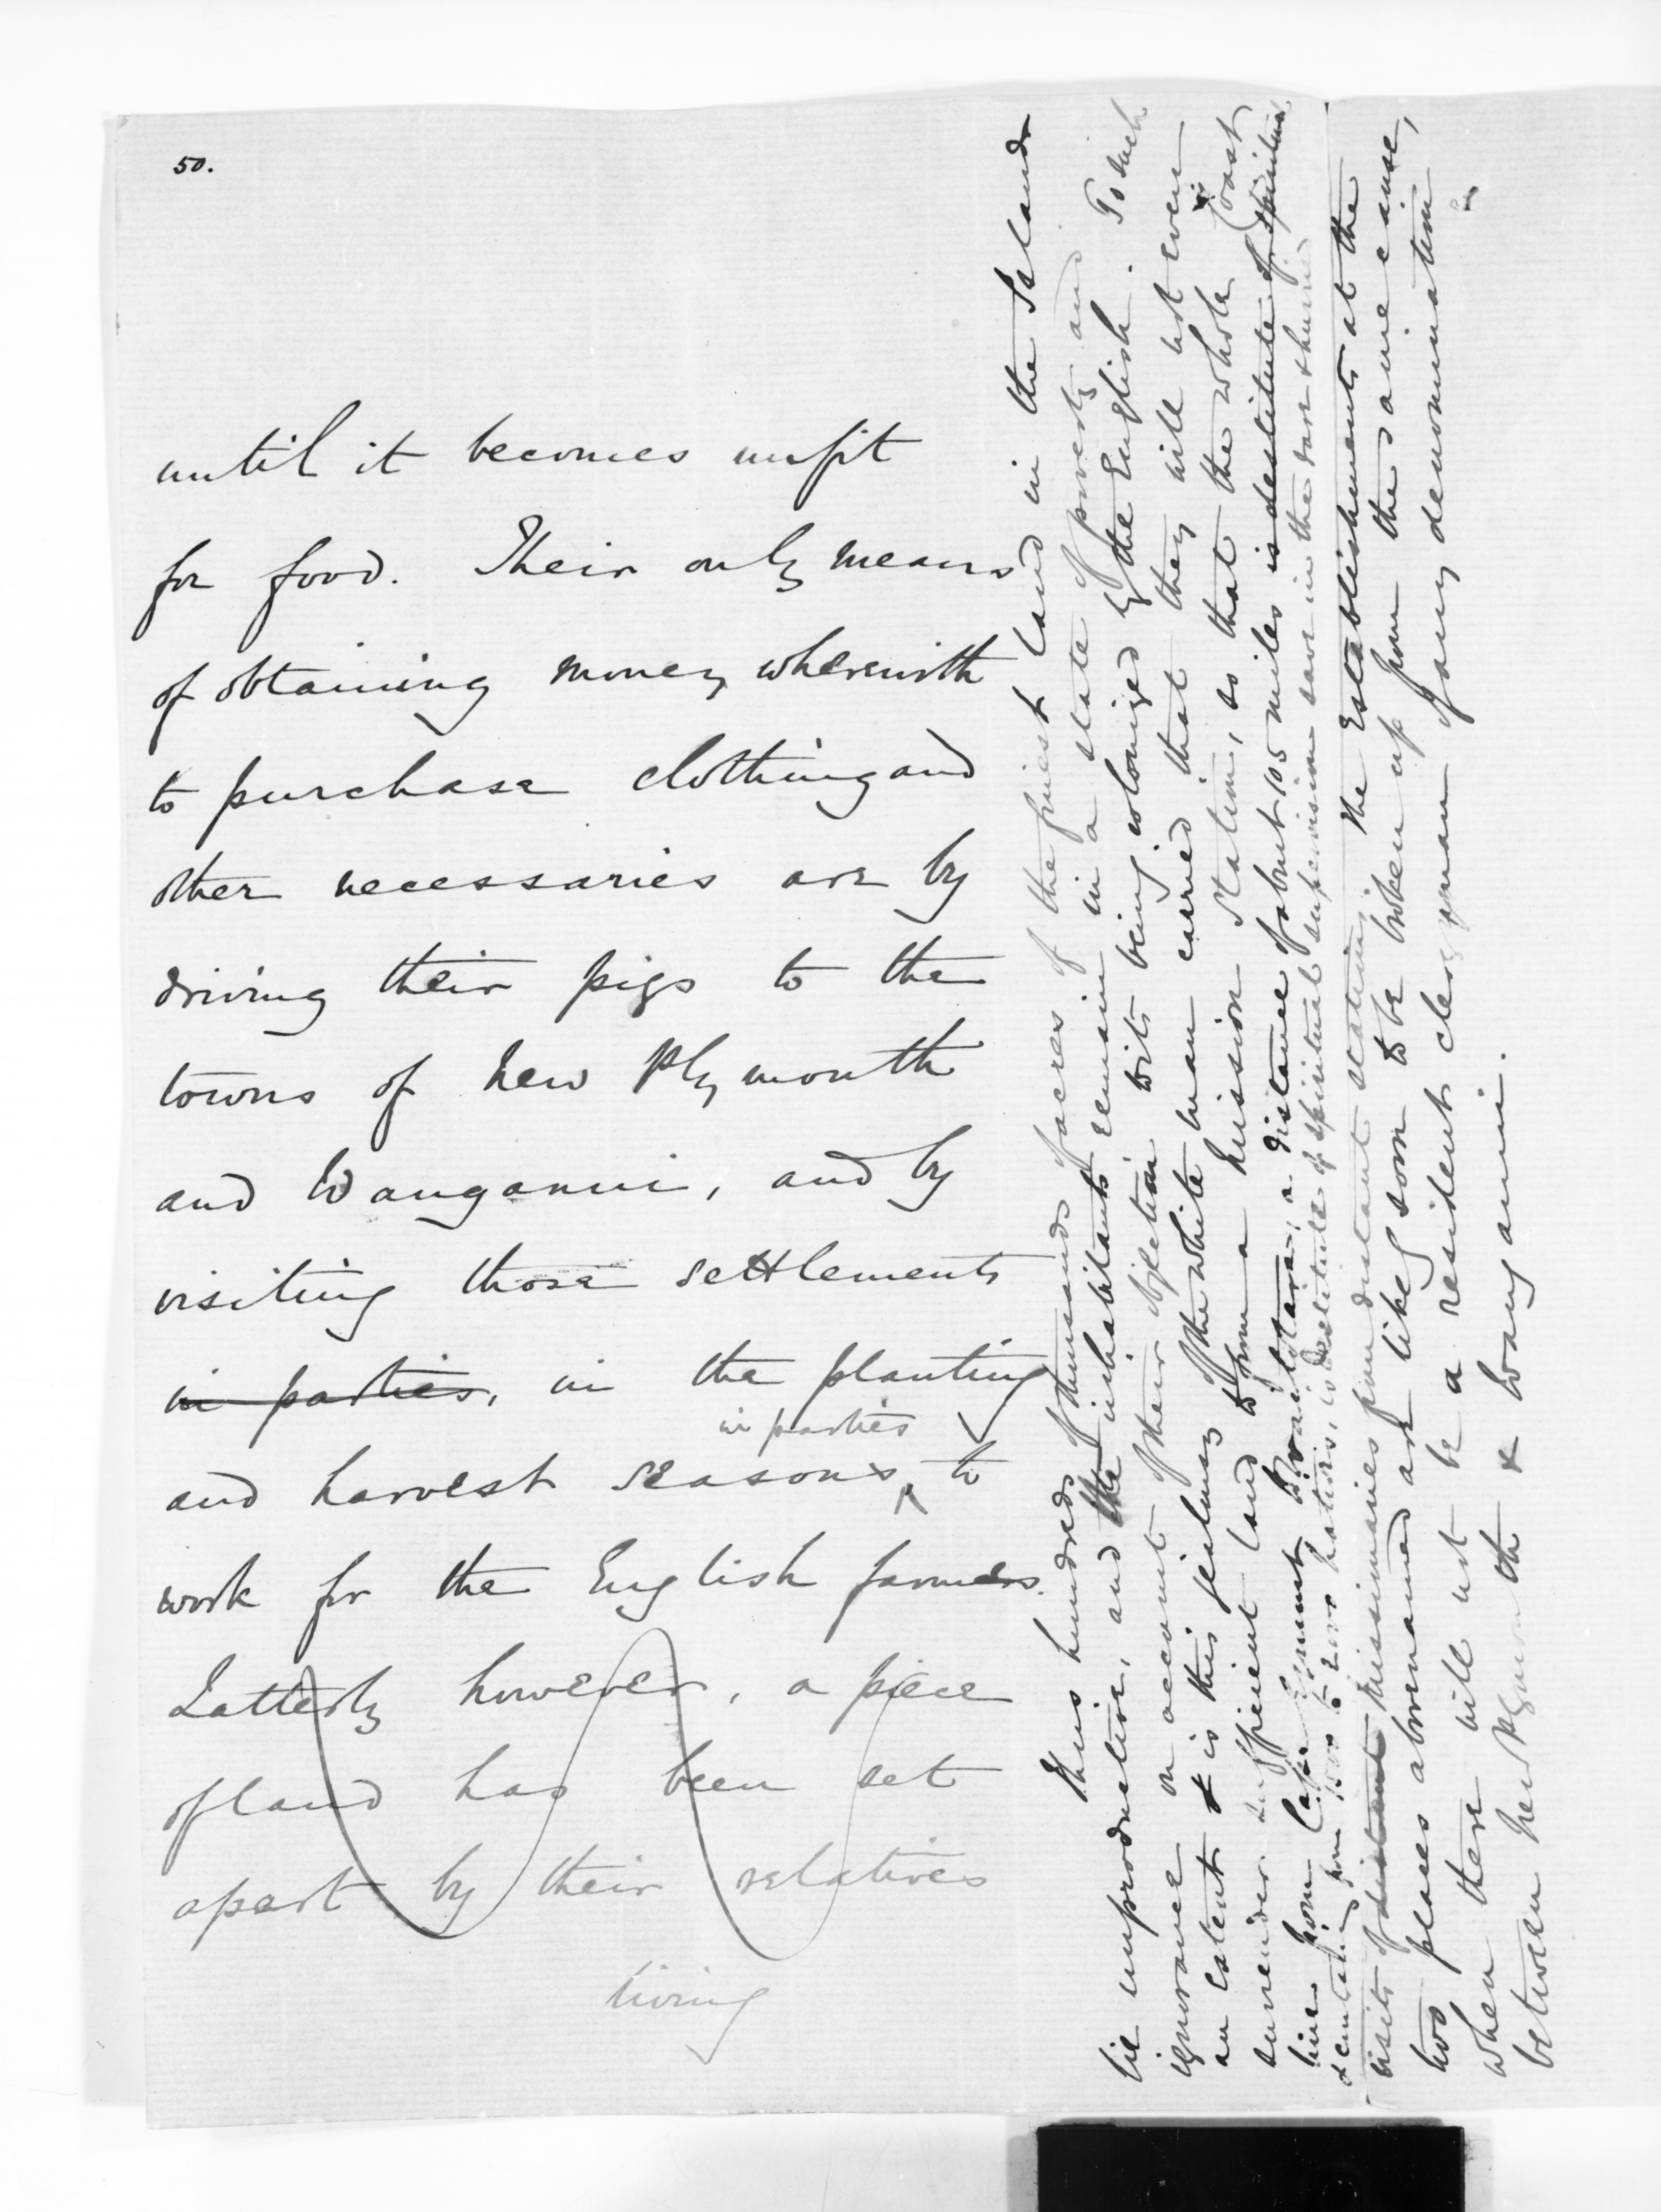 50.
until it becomes unfit
for food. Their only means
of obtaining money wherewith
to purchase clothing and
other necessaries are by
driving their pigs to the
towns of New Plymouth
and Wanganui, and by
visiting those settlements
in parties, in the planting
in parties
and harvest seasons, to
work for the English farmers.
Latterly however, a piece
of land has been set
apart by their relatives
living
Thus hundreds of thousands of acres of the finest land in the Islands
lie unproductive, and the inhabitants remain in a state of poverty and
ignorance on account of their objection to its being colonized by the English. To such
an extent is this jealousy of the white man carried that they will not even
surrender sufficient land to form a mission station, so that the whole Coast
line from Cape Egmont to Waitotara, a distance of about 105 miles is destitute of spiritual
& containing from 1500 to 2000 natives, is destitute of spiritual supervision save in the
visits of distant missionaries from distant stations. The Establishments at the
two places abovenamed are likely soon to be broken up from the same cause,
when there will not be a resident clergyman of any denomination
between New Plymouth & Wanganui.